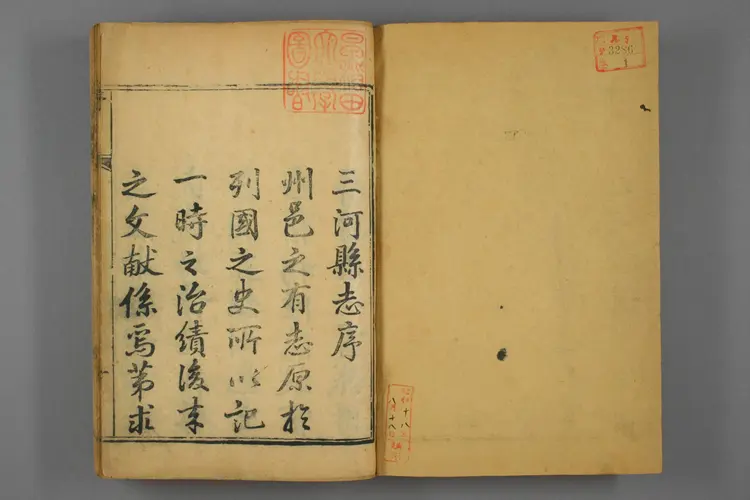 三河縣志序
州邑之有志原於
列國之史所以記
一時之治績後来
之文献係焉第求
3286
1